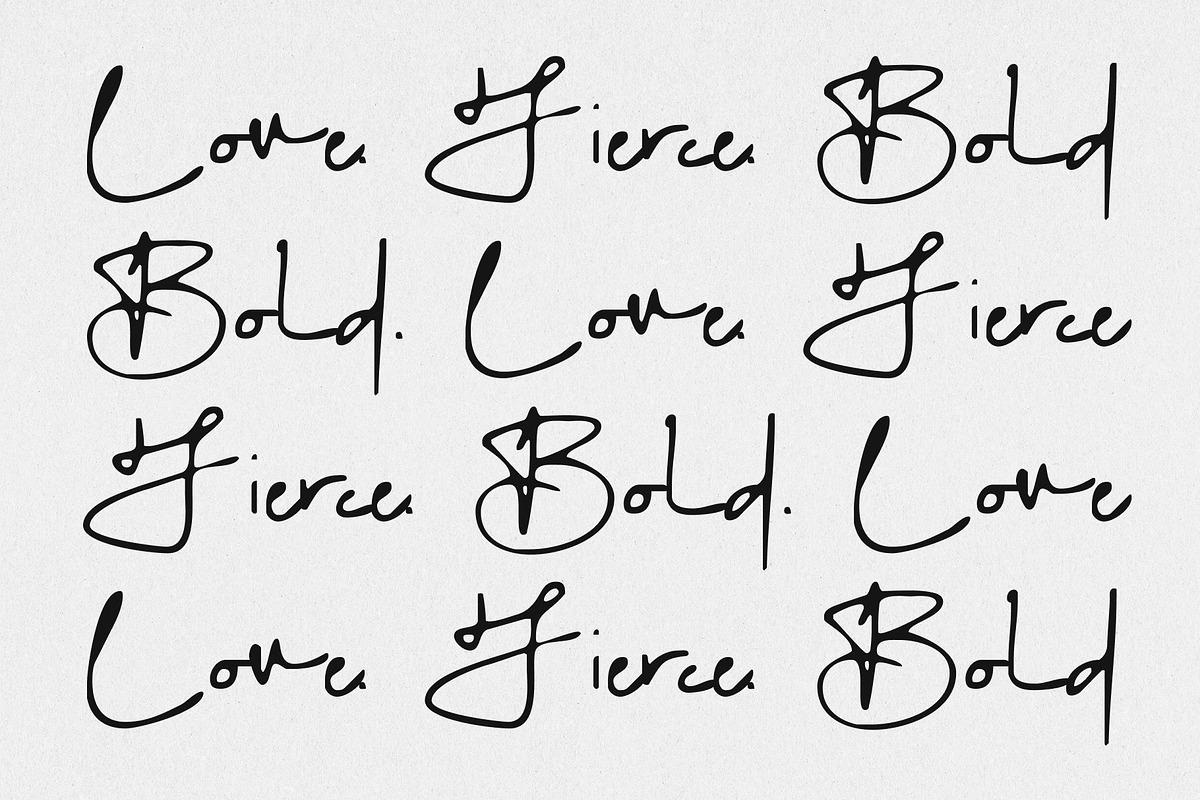 Love. Fierce. Bold
Bold. Love. Fierce
Fierce. Bold. Love
Love. Fierce. Bold